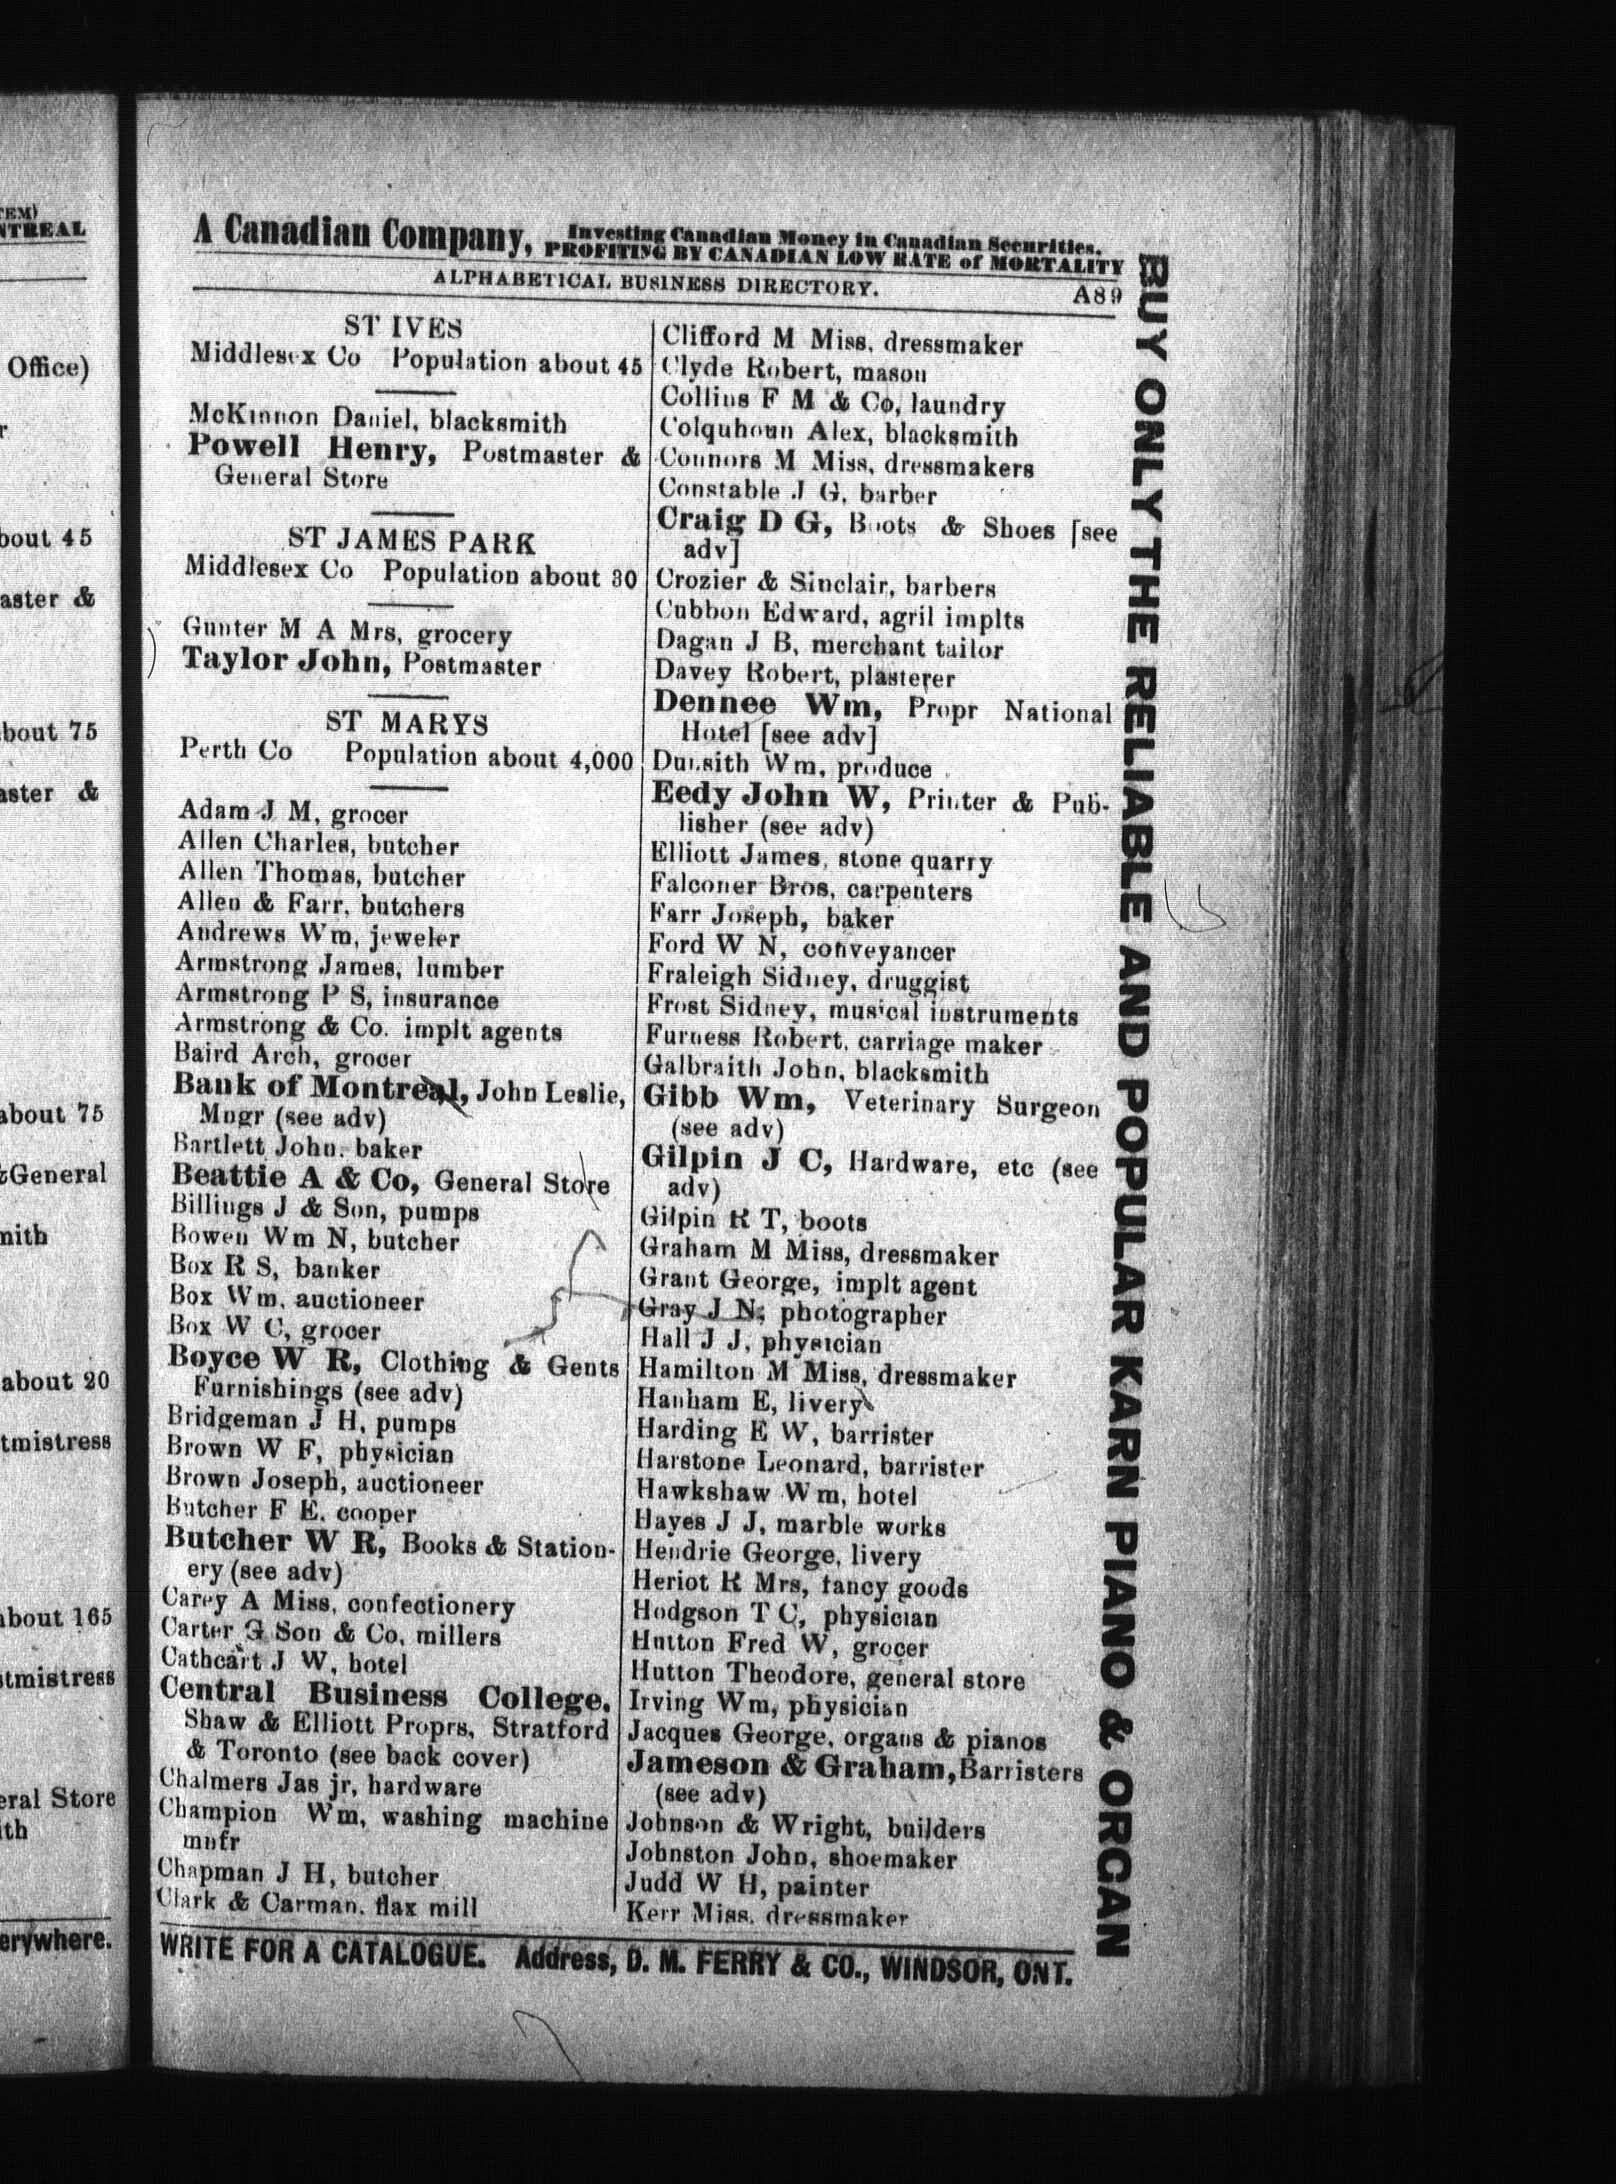 TEM)
NTREAL
Office)
r
bout 45
aster &
bout 75
aster &
about 75
&General
mith
about 20
tmistress
about 165
stmistress
eral Store
ith
erywhere.
A Canadian Company, Investing Canadian Money in Canadian Securities.
PROFITING BY CANADIAN LOW RATE of MORTALITY
ALPHABETICAL BUSINESS DIRECTORY. A89
ST IVES
Middlesex Co Population about 45
McKinnon Daniel, blacksmith
Powell Henry, Postmaster &
General Store
ST JAMES PARK
Middlesex Co Population about 30
Gunter M A Mrs, grocery
Taylor John, Postmaster
ST MARYS
Perth Co Population about 4,000
Adam J M, grocer
Allen Charles, butcher
Allen Thomas, butcher
Allen & Farr, butchers
Andrews Wm, jeweler
Armstrong James, lumber
Armstrong P S, insurance
Armstrong & Co. implt agents
Baird Arch, grocer
Bank of Montreal, John Leslie,
Mngr (see adv)
Bartlett John, baker
Beattie A & Co, General Store
Billings J & Son, pumps
Bowen Wm N, butcher
Box R S, banker
Box Wm, auctioneer
Box W C, grocer
Boyce W R, Clothing & Gents
Furnishings (see adv)
Bridgeman J H, pumps
Brown W F, physician
Brown Joseph, auctioneer
Butcher F E, cooper
Butcher W R, Books & Station-
ery (see adv)
Carey A Miss, confectionery
Carter G Son & Co, millers
Cathcart J W, hotel
Central Business College,
Shaw & Elliott Proprs, Stratford
& Toronto (see back cover)
Chalmers Jas jr, hardware
Champion Wm, washing machine
mnfr
Chapman J H, butcher
Clark & Carman, flax mill
Clifford M Miss, dressmaker
Clyde Robert, mason
Collins F M & Co, laundry
Colquhoun Alex, blacksmith
Connors M Miss, dressmakers
Constable J G, barber
Craig D G, Boots & Shoes [see
adv]
Crozier & Sinclair, barbers
Cubbon Edward, agril implts
Dagan J B, merchant tailor
Davey Robert, plasterer
Dennee Wm, Propr National
Hotel [see adv]
Dunsith Wm, produce
Eedy John W, Printer & Pub-
lisher (see adv)
Elliott James, stone quarry
Falconer Bros, carpenters
Farr Joseph, baker
Ford W N, conveyancer
Fraleigh Sidney, druggist
Frost Sidney, musical instruments
Furness Robert, carriage maker
Galbraith John, blacksmith
Gibb Wm, Veterinary Surgeon
(see adv)
Gilpin J C, Hardware, etc (see
adv)
Gilpin R T, boots
Graham M Miss, dressmaker
Grant George, implt agent
Gray J N, photographer
Hall J J, physician
Hamilton M Miss, dressmaker
Hanham E, livery
Harding E W, barrister
Harstone Leonard, barrister
Hawkshaw Wm, hotel
Hayes J J, marble works
Hendrie George, livery
Heriot R Mrs, fancy goods
Hodgson T C, physician
Hutton Fred W, grocer
Hutton Theodore, general store
Irving Wm, physician
Jacques George, organs & pianos
Jameson & Graham, Barristers
(see adv)
Johnson & Wright, builders
Johnston John, shoemaker
Judd W H, painter
Kerr Miss, dressmaker
WRITE FOR A CATALOGUE. Address, D. M. FERRY & CO., WINDSOR, ONT.
BUY ONLY THE RELIABLE AND POPULAR KARN PIANO & ORGAN